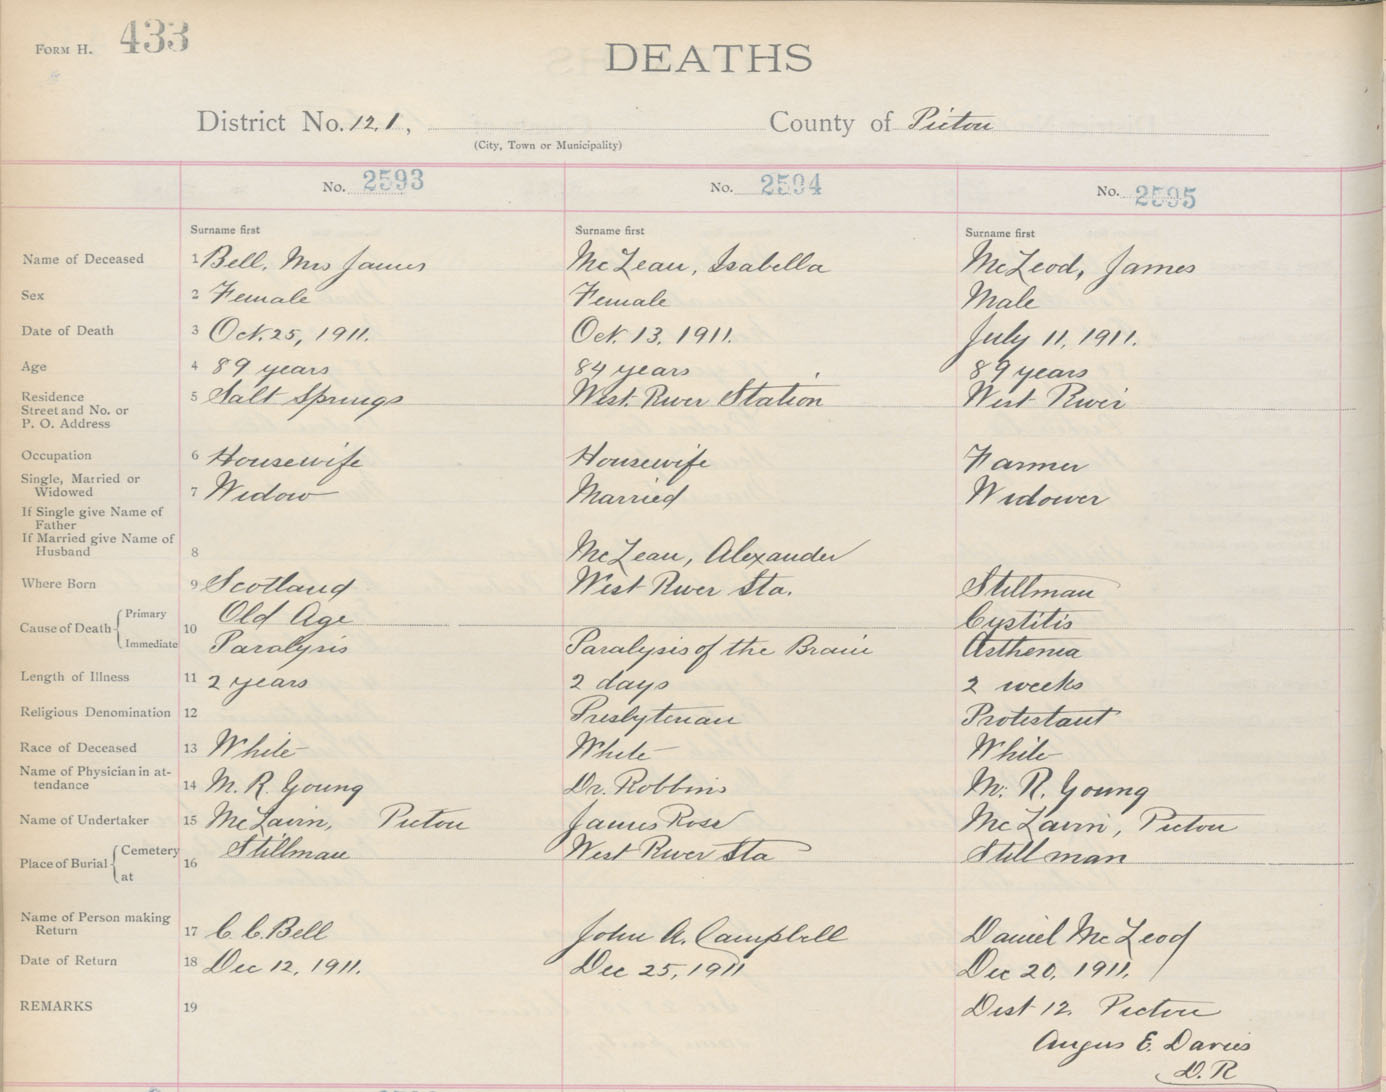 FORM H. 433
DEATHS
District No. 12.1, County of Pictou
(City, Town or Municipality)
No. 2593 No. 2594 No. 2595
Surname first Surname first Surname first
Name of Deceased 1 Bell, Mrs James McLean, Isabella McLeod, James
Sex 2 Female Female Male
Date of Death 3 Oct. 25, 1911. Oct. 13, 1911. July 11, 1911.
Age 4 89 years 84 years 89 years
Residence
Street and No. or
P. O. Address
5 Salt Springs West River Station West River
Occupation 6 Housewife Housewife Farmer
Single, Married or
Widowed
7 Widow Married Widower
If Single give Name of
Father
If Married give Name of
Husband
8 McLean, Alexander
Where Born 9 Scotland West River Sta. Stillman
Cause of Death Primary 10 Old Age Cystitis
Immediate Paralysis Paralysis of the Brain Asthenia
Length of Illness 11 2 years 2 days 2 weeks
Religious Denomination 12 Presbyterian Protestant
Race of Deceased 13 White White White
Name of Physician in at-
tendance
14 M. R. Young Dr. Robbins M. R. Young
Name of Undertaker 15 McLavin, Pictou James Ross McLavin, Pictou
Place of Burial Cemetery 16 Stillman West River Sta Stillman
at
Name of Person making
Return
17 C. C. Bell John A. Campbell Daniel McLeod
Date of Return 18 Dec 12, 1911. Dec 25, 1911 Dec 20, 1911.
REMARKS 19 Dist 12. Pictou
Angus E. Davies
D. R